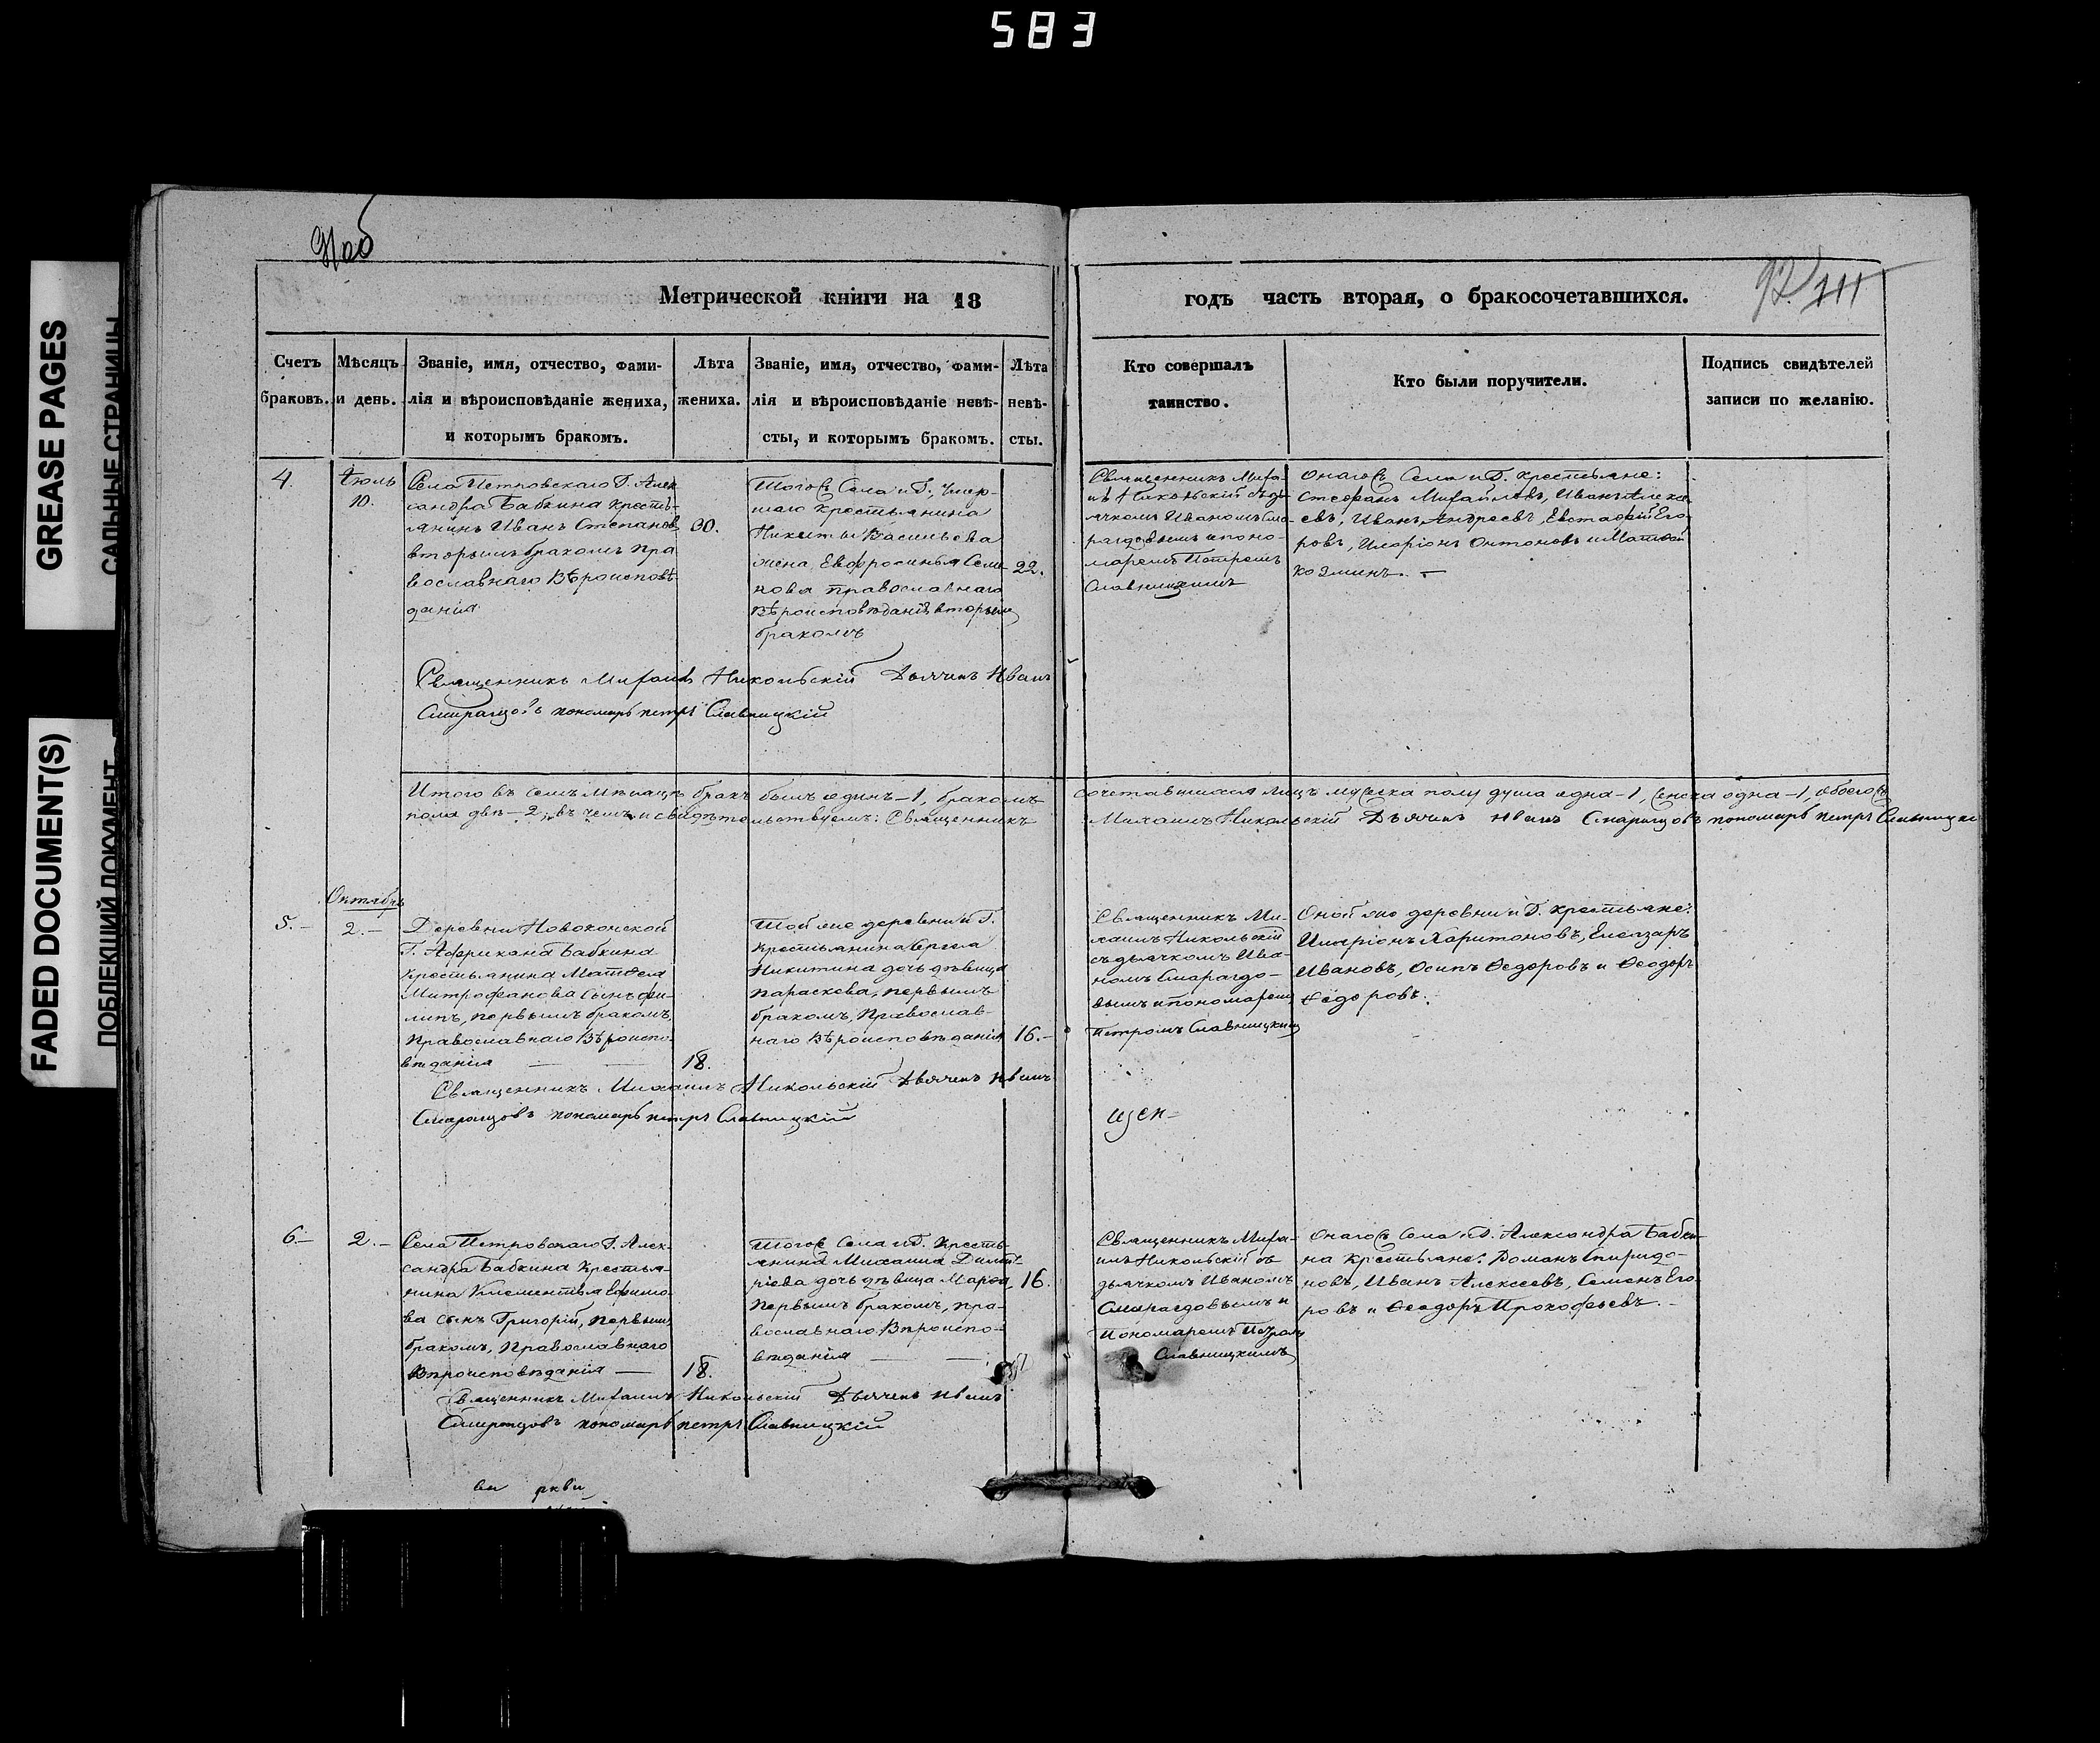 583
GREASE PAGES
САЛЬНЫЕ СТРАНИЦЫ
FADED DOCUMENT(S)
ПОБЛЕКШИЙ ДОКУМЕНТ
92 111
Метрической книги на 18
годъ часть вторая, о бракосочетавшихся.
Счетъ браковъ.
Мѣсяцъ и день.
Званіе, имя, отчество, фами-
лія и вѣроисповѣданіе жениха,
и которымъ бракомъ.
Лѣта
жениха.
Званіе, имя, отчество, фами-
лія и вѣроисповѣданіе невѣ-
сты, и которымъ бракомъ.
Лѣта
невѣ-
сты.
Кто совершалъ
таинство.
Кто были поручители.
Подпись свидѣтелей
записи по желанію.
4.
Іюль
10.
Села Петровскаго Г. Алек
сандра Бабкина кресть-
янинъ Иванъ Степановъ
вторымъ бракомъ пра
вославнаго Вѣроисповѣ
данія
30.
Тогожъ Села и Г. Умер-
шаго крестьянина
Никиты Васильева
жена Евфросинья Семе
нова православнаго
Вѣроисповѣданія вторымъ
бракомъ
22.
Священникъ Миха-
илъ Никольскій съ дь-
ячкомъ Иваномъ Сма-
рагдовымъ и поно-
маремъ Петромъ
Славницкимъ
Онагожъ Села и Г. крестьяне:
Стефанъ Михайловъ, Иванъ Алексе
евъ, Иванъ Андреевъ, Евстафій Его
ровъ, Иларіонъ Онтоновъ и Матвей
Козминъ. —
Священникъ Михаилъ Никольскій Дьячекъ Иванъ
Смарагдовъ пономарь петръ Славницкій
Итого въ семъ мѣсяцѣ бракъ былъ одинъ—1, бракомъ сочетавшихся лицъ мужеска полу душа одна—1, женска одна—1, обоегожъ
пола двѣ—2, въ чемъ и свидѣтельствуемъ: Священникъ Михаилъ Никольскій Дьячекъ Иванъ Смарагдовъ пономарь петръ Славницкі
Октябрь
5.—
2.—
Деревни Новоконской
Г. Африкана Бабкина
крестьянина Матвея
Митрофанова сынъ Фи-
липъ, первымъ бракомъ,
Православнаго Вѣроиспо-
вѣданія —
18.
Той же деревни и Г.
крестьянина Сергея
Никитина дочь дѣвица
Параскева, первымъ
бракомъ, Православ-
наго Вѣроисповѣданія
16.—
Священникъ Ми-
хаилъ Никольскій
съ дьячкомъ Ива-
номъ Смарагдо-
вымъ и пономаремъ
Петромъ Славницкимъ
Оной же деревни и Г. крестьяне:
Иларіонъ Харитоновъ, Елеазаръ
Ивановъ, Осипъ Ѳедоровъ и Ѳеодоръ
Ѳедоровъ.
Священникъ Михаилъ Никольскій Дьячекъ Иванъ
Смарагдовъ пономарь петръ Славницкій
щен-
6.—
2.—
Села Петровскаго Г. Алек-
сандра Бабкина Крестья-
нина Климентья Ефимо-
ва сынъ Григорій, первымъ
бракомъ, Православнаго
Вѣроисповѣданія —
18.
Тогожъ Села и Г. Кресть-
янина Михаила Димит
ріева дочь дѣвица Марѳа,
первымъ бракомъ, пра-
вославнаго Вѣроиспо-
вѣданія —
16.
Священникъ Миха-
илъ Никольскій съ
дьячкомъ Иваномъ
Смарагдовымъ и
Пономаремъ Петромъ
Славницкимъ
Онагожъ Села и Г. Александра Бабки-
на крестьяне: Романъ Спиридо-
новъ, Иванъ Алексеевъ, Семенъ Его-
ровъ и Ѳеодоръ Прокофьевъ. —
Священникъ Михаилъ Никольскій Дьячекъ Иванъ
Смарагдовъ пономарь петръ Славницкій